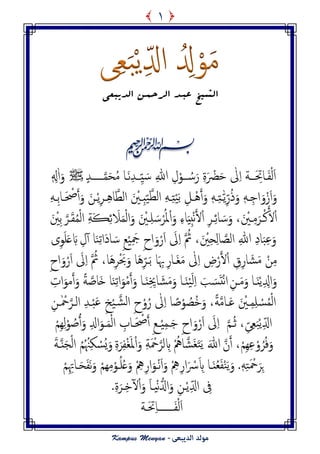 ﴿ ١ ﴾
مَوْلِدُ الدِّيْبَعِى
الشيخ عبد الرحمن الديبعى
بسم الله الرحمن الرحيم
اَلْفَاتِحَةَ اِلَى حَضْرَةِ رَسُوْلِ اللهِ سَيِّدِنَا مُحَمَّدٍ ﷺ وَاٰلِهِ
وَاَزْوَاجِهِ وَذُرِّيَّتِهِ وَاَهْلِ بَيْتِهِ الطَّيِّبِيْنَ الطَّاهِرِيْنَ وَاَصْحَابِهِ
الْأَكْرَمِيْنَ، وَسَائِرِ الْأَنْبِيَاءِ وَالْمُرْسَلِيْنَ وَالْمَلَائِكَةِ الْمُقَرَّبِيْنَ
وَعِبَادِ اللهِ الصَّالِحِيْنَ، ثُمَّ اِلَى اَرْوَاحِ جَمِيْعِ سَادَاتِنَا آلِ بَاعَلَوِى
مِنْ مَشَارِقِ الْأَرْضِ اِلَى مَغَارِبِهَا بَرِّهَا وَبَحْرِهَا، ثُمَّ اِلَى اَرْوَاحِ
وَالِدِيْنَا وَمَنْ اَنْتَسَبَ اِلَيْنَا وَمَشَايِخِنَا وَاَمْوَاتِنَا خَاصَّةً وَاَمْوَاتِ
الْمُسْلِمِيْنَ عَامَّةً، وَخُصُوْصًا اِلَى رُوْحِ الشَّيْخِ عَبْدِ الرَّحْمٰنِ
الدِّيْبَعِيِّ، ثُمَّ اِلَى اَرْوَاحِ جَمِيْعِ اَصْحَابِ الْمَوَالِدِ وَاُصُوْلِهِمْ
وَفُرُوْعِهِمْ، اَنَّ اللهَ يَتَغَشَّاهُمْ بِالرَّحْمَةِ وَالْمَغْفِرَةِ وَيُسْكِنُهُمُ الْجَنَّةَ
بِرَحْمَتِهِ. وَيَنْفَعُنَا بِاَسْرَارِهِمْ وَاَنْوَارِهِمْ وَعُلُوْمِهِمْ وَنَفَحَاتِهِمْ
فِى الدِّيْنِ وَالدُّنْيَا وَالْآخِرَةِ.
اَلْفَاتِحَةَ
مولد الديبعى - Kampus Wenyan